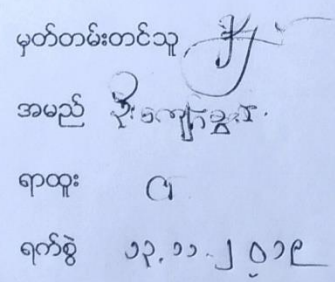 မှတ်တမ်းတင်သူ
အမည် ဦး
ရာထူး
ရက်စွဲ ၁၃.၁၁.၂၀၁၉